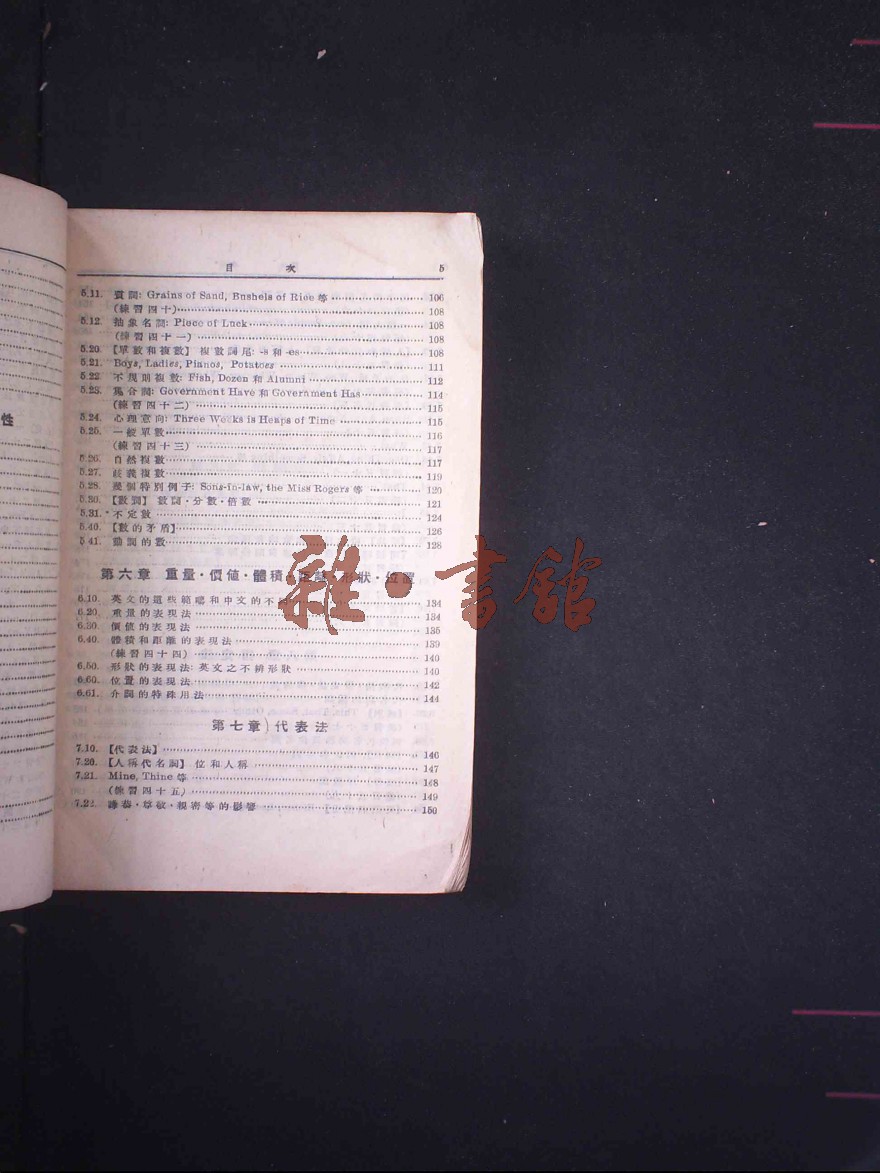 性
目 次 5
5.11. 質詞: Grains of Sand, Bushels of Rice 等 106
(練習四十) 108
5.12. 抽象名詞: Piece of Luck 108
(練習四十一) 108
5.20. 【單數和複數】 複數詞尾: -s 和 -es 108
5.21. Boys, Ladies, Pianos, Potatoes 111
5.22. 不規則複數: Fish, Dozen 和 Alumni 112
5.23. 集合詞: Government Have 和 Government Has 114
(練習四十二) 115
5.24. 心理意向: Three Weeks is Heaps of Time 115
5.25. 一般單數 116
(練習四十三) 117
5.26. 自然複數 117
5.27. 歧義複數 119
5.28. 幾個特別例子: Sons-in-law, the Miss Rogers 等 120
5.30. 【數詞】 數詞·分數·倍數 121
5.31. 不定數 124
5.40. 【數的矛盾】 126
5.41. 動詞的數 128
第六章 重量·價值·體積·形狀·位置
6.10. 英文的這些範疇和中文的不同 134
6.20. 重量的表現法 134
6.30. 價值的表現法 135
6.40. 體積和距離的表現法 139
(練習四十四) 140
6.50. 形狀的表現法: 英文之不辨形狀 140
6.60. 位置的表現法 142
6.61. 介詞的特殊用法 144
第七章 代表法
7.10. 【代表法】 146
7.20. 【人稱代名詞】 位和人稱 147
7.21. Mine, Thine 等 148
(練習四十五) 149
7.22. 謙恭·尊敬·親密等的影響 150
雜·書館